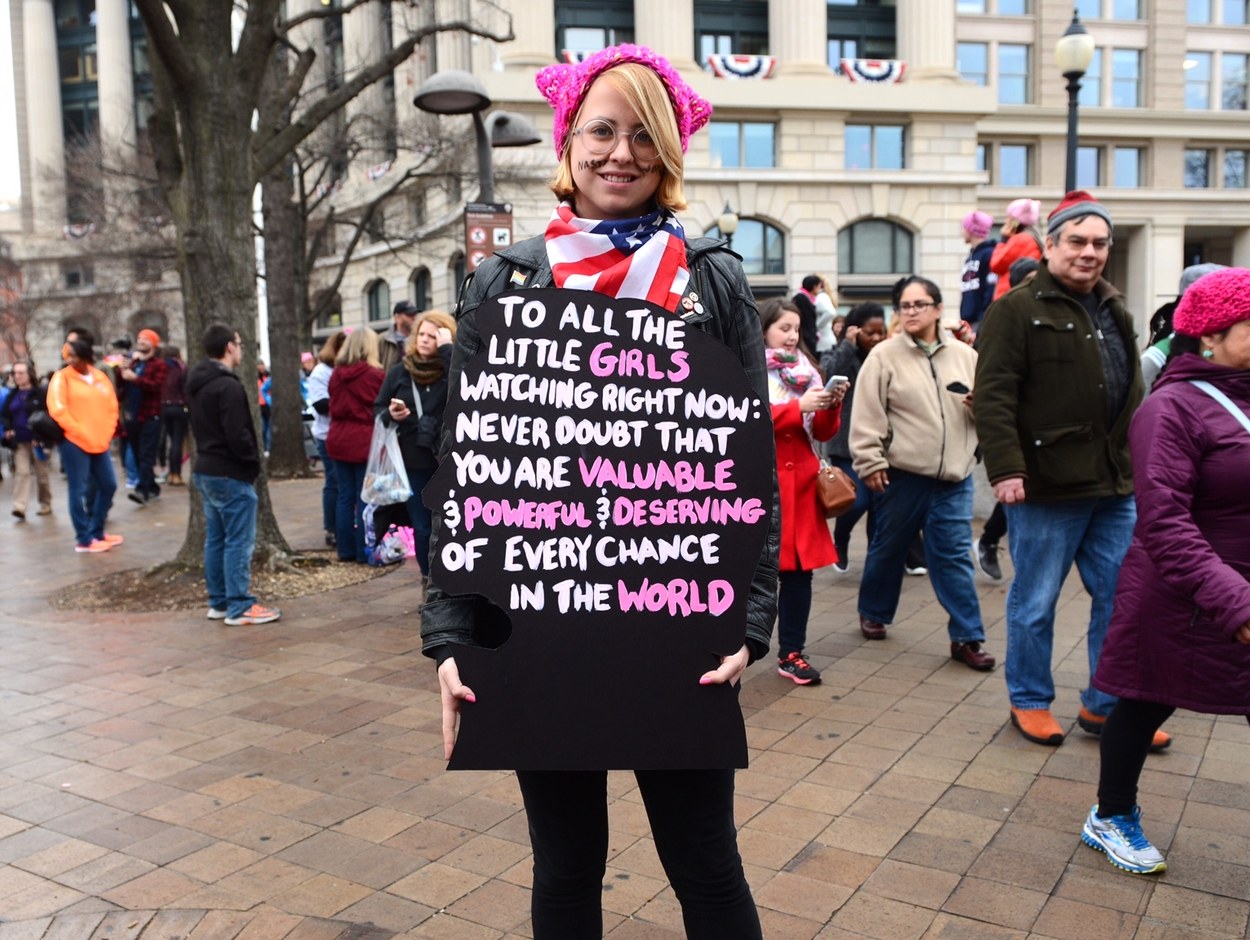 TO ALL THE
LITTLE GIRLS
WATCHING RIGHT NOW:
NEVER DOUBT THAT
YOU ARE VALUABLE
& POWERFUL & DESERVING
OF EVERY CHANCE
IN THE WORLD